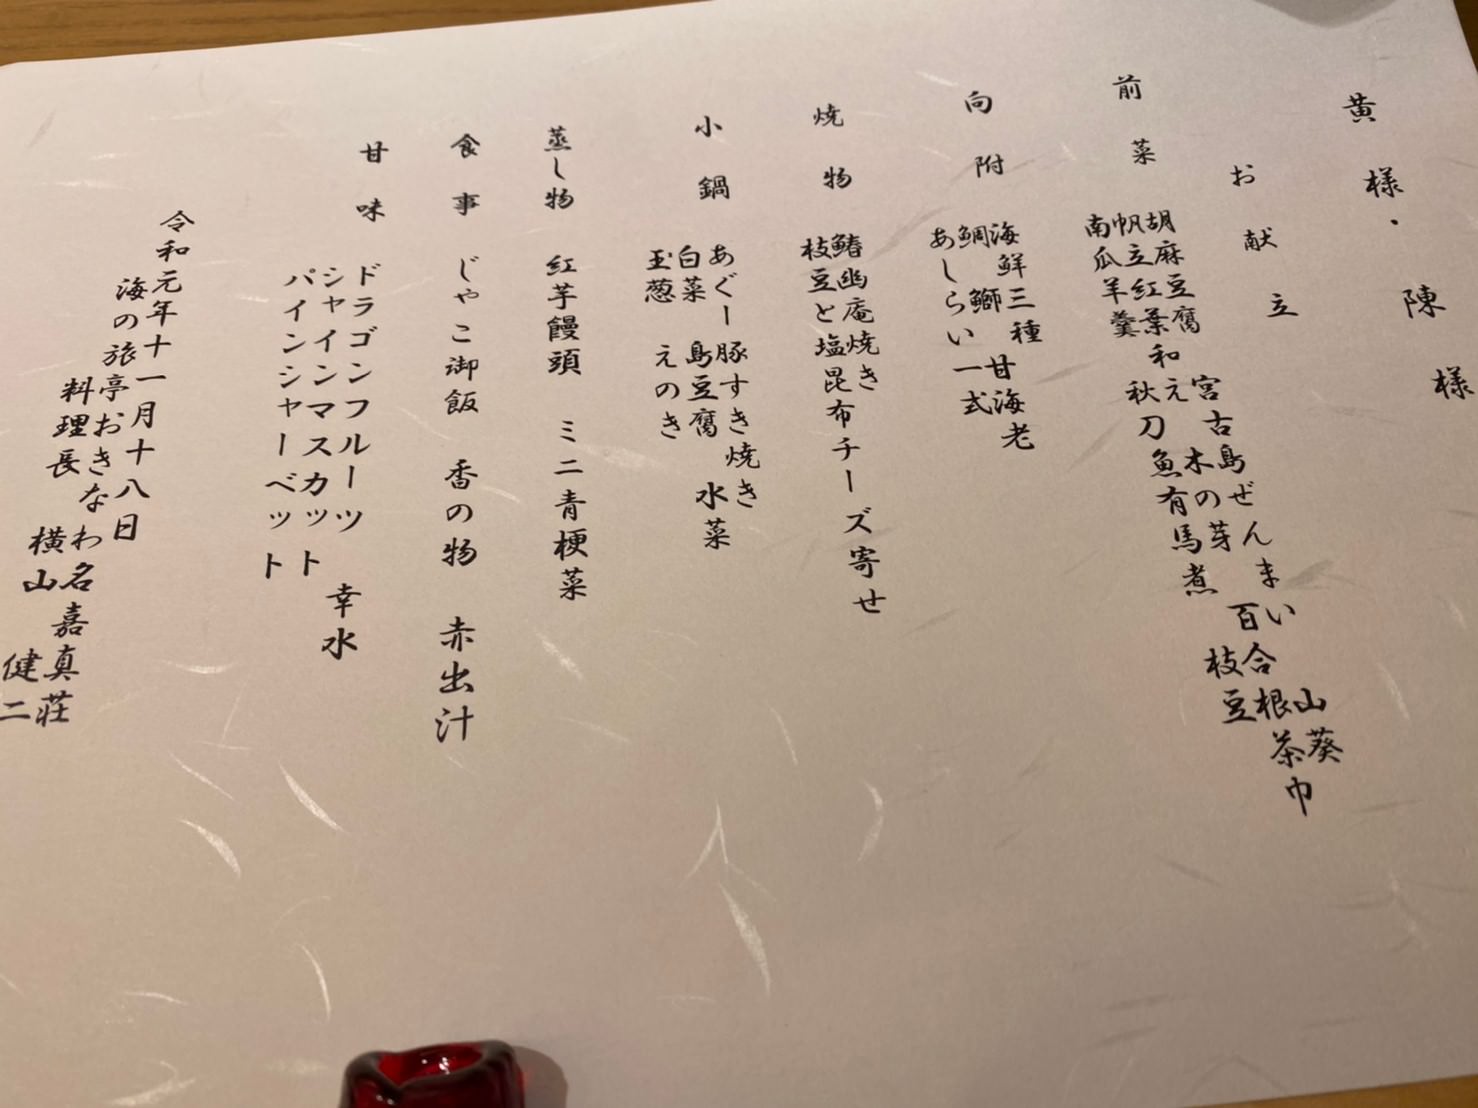 黄様・陳様
お献立
前菜
胡麻豆腐 宮古島ぜんまい 山葵
帆立紅葉和え 木の芽 百合根茶巾
南瓜羊羹 秋刀魚有馬煮 枝豆
向附
海鮮三種 甘海老
鯛 鰤
あしらい一式
焼物
鰆幽庵焼き
枝豆と塩昆布チーズ寄せ
小鍋
あぐー豚すき焼き
白菜 島豆腐 水菜
玉葱 えのき
蒸し物 紅芋饅頭 ミニ青梗菜
食事 じゃこ御飯 香の物 赤出汁
甘味
ドラゴンフルーツ 幸水
シャインマスカット
パインシャーベット
令和元年十一月十八日
海の旅亭おきなわ名嘉真荘
料理長 横山 健二